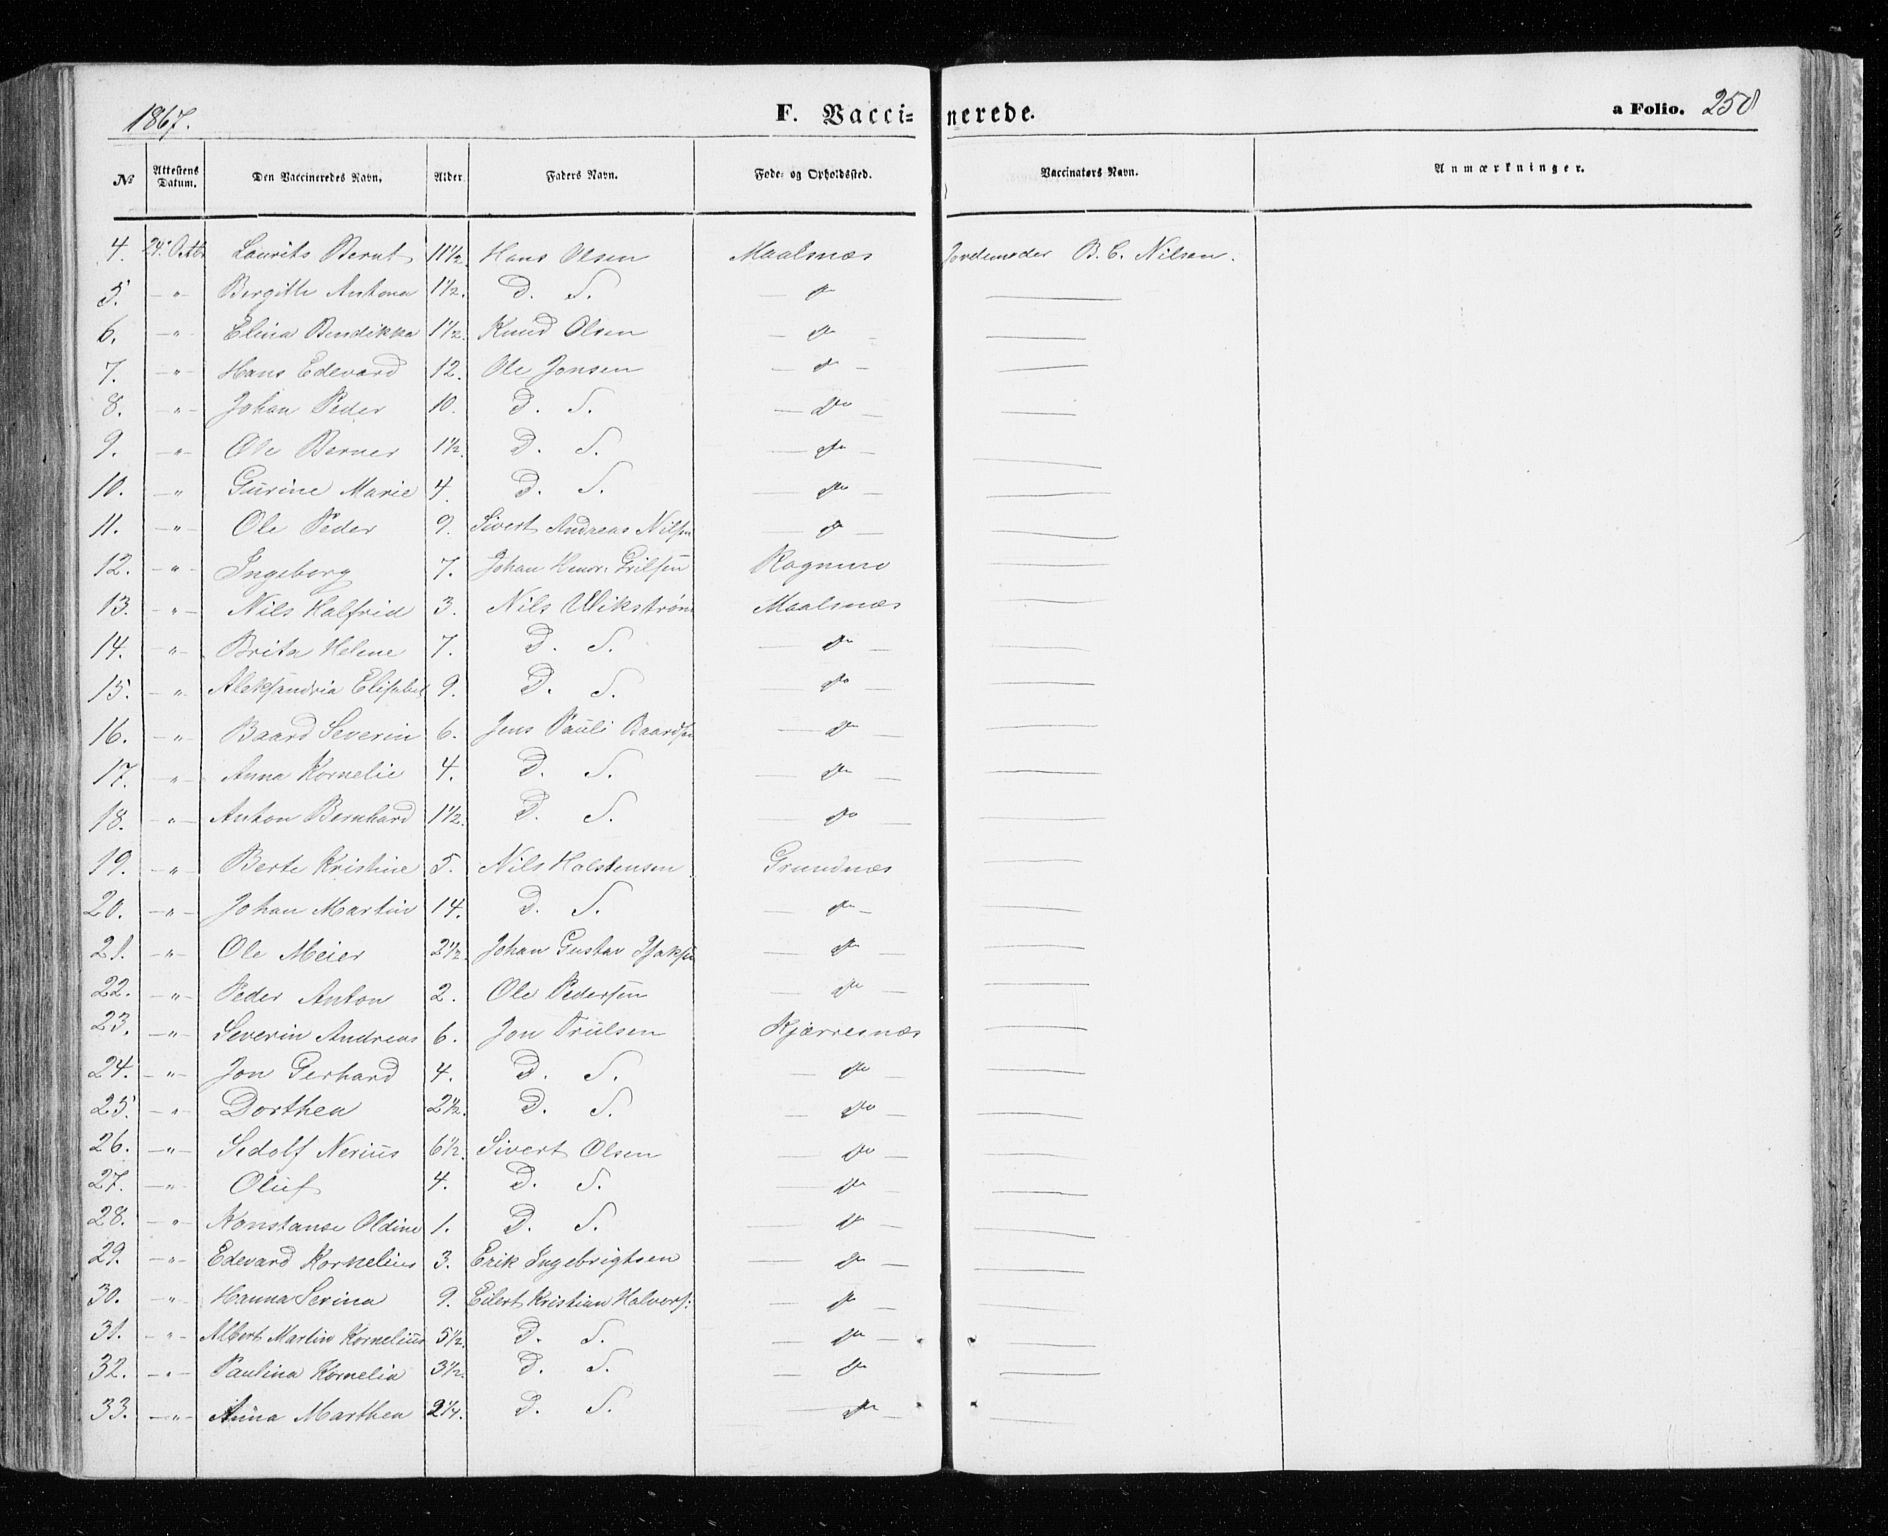 1867. F. Vaccinerede. a Folio. 250
No Attestens Datum. Den Vaccineredes Navn. Alder. Faders Navn. Føde- og Opholdssted. Vaccinators Navn. Anmærkninger.
4. 24. Octbr Laurits Bernt 11½ Hans Olsen Maalsnæs Jordemoder B. C. Nilsen.
5. — " — Bergitte Antona 1½. D. S. — " —
6. — " — Elina Bendikka 1½. Knud Olsen — " —
7. — " — Hans Edevard 12. Ole Jonsen — " —
8. — " — Johan Peder 10. D. S. — " —
9. — " — Ole Berner 1½. D. S. — " —
10. — " Gurine Marie 4. D. S. — " —
11. — " — Ole Peder 9. Sivert Andreas Nilsen — " —
12. — " — Ingeborg 7. Johan Henr:
13. — " — Nils Halfrid 3. Nils Wikstrøm Maalsnæs
14. — " — Brita Helene 7. D. S. — " —
15. — " Aleksandria Elisabet 9. D. S. — " —
16. — " Baard Severin 6. Jens Pauli Baardsen — " —
17. — " Anna Kornelie 4. D. S. — " —
18. — " — Anton Bernhard 1½. D. S. — " —
19. — " — Berte Kristine 5. Nils Holstensen Grundnæs
20. — " — Johan Martin 14. D. S. — " —
21. — " — Ole Meier 2½. Johan Gustav Isaksen — " —
22. — " — Peder Anton 2. Ole Pedersen — " —
23. — " — Severin Andreas 6. Jon Trulsen Kjærresnæs
24. — " — Jon Gerhard 4. D. S. — " —
25. — " — Dorthea 2½. D. S. — " —
26. — " — Sedolf Nerius 6½. Sivert Olsen — " —
27. — " — Oluf 4. D. S. — " —
28. — " Konstanse Oldine 1. D. S. — " —
29. — " — Edevard Kornelius 3. Erik Ingebrigtsen — " —
30. — " Hanna Serina 9. Eilert Kristian Halvors: — " —
31. — " — Albert Martin Kornelius 5½. D. S. — " —
32. — " — Paulina Kornelia 3½. D. S. — " —
33. — " — Anna Marthea 2¼. D. S. — " —